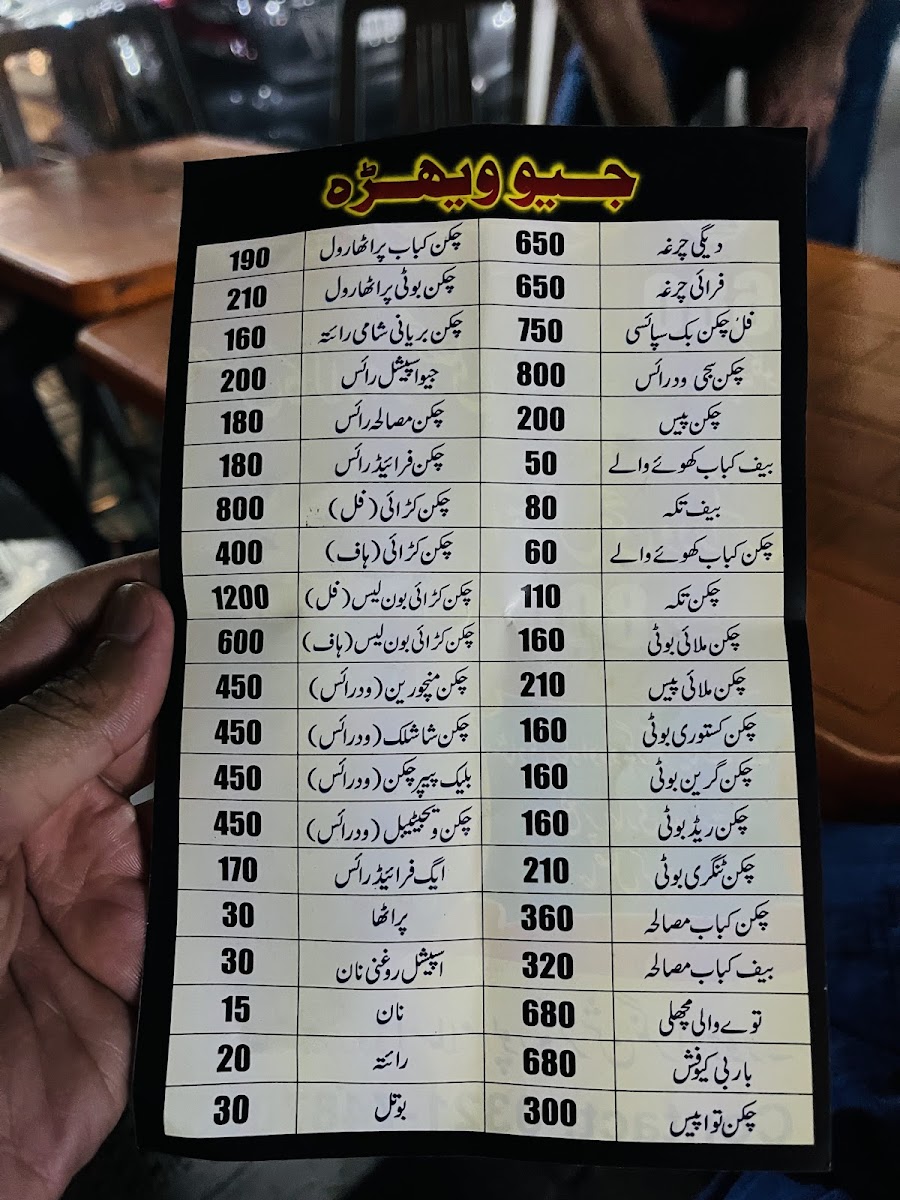 جیو ویھڑہ
دیگی چرغہ 650 چکن کباب پراٹھا رول 190
فرائی چرغہ 650 چکن بوٹی پراٹھا رول 210
فل چکن بک سپائسی 750 چکن بریانی شامی رائتہ 160
چکن سجی ود رائس 800 جیو اسپیشل رائس 200
چکن پیس 200 چکن مصالحہ رائس 180
بیف کباب کھوئے والے 50 چکن فرائیڈ رائس 180
بیف تکہ 80 چکن کڑائی (فل) 800
چکن کباب کھوئے والے 60 چکن کڑائی (ہاف) 400
چکن تکہ 110 چکن کڑائی بون لیس (فل) 1200
چکن ملائی بوٹی 160 چکن کڑائی بون لیس (ہاف) 600
چکن ملائی پیس 210 چکن منچورین (ودرائس) 450
چکن کستوری بوٹی 160 چکن شاشلک (ودرائس) 450
چکن گرین بوٹی 160 بلیک پیپر چکن (ودرائس) 450
چکن ریڈ بوٹی 160 چکن ویجیٹیبل (ودرائس) 450
چکن ٹنگری بوٹی 210 ایگ فرائیڈ رائس 170
چکن کباب مصالحہ 360 پراٹھا 30
بیف کباب مصالحہ 320 اسپیشل روغنی نان 30
توے والی مچھلی 680 نان 15
باربی کیو فش 680 رائتہ 20
چکن توا پیس 300 بوتل 30